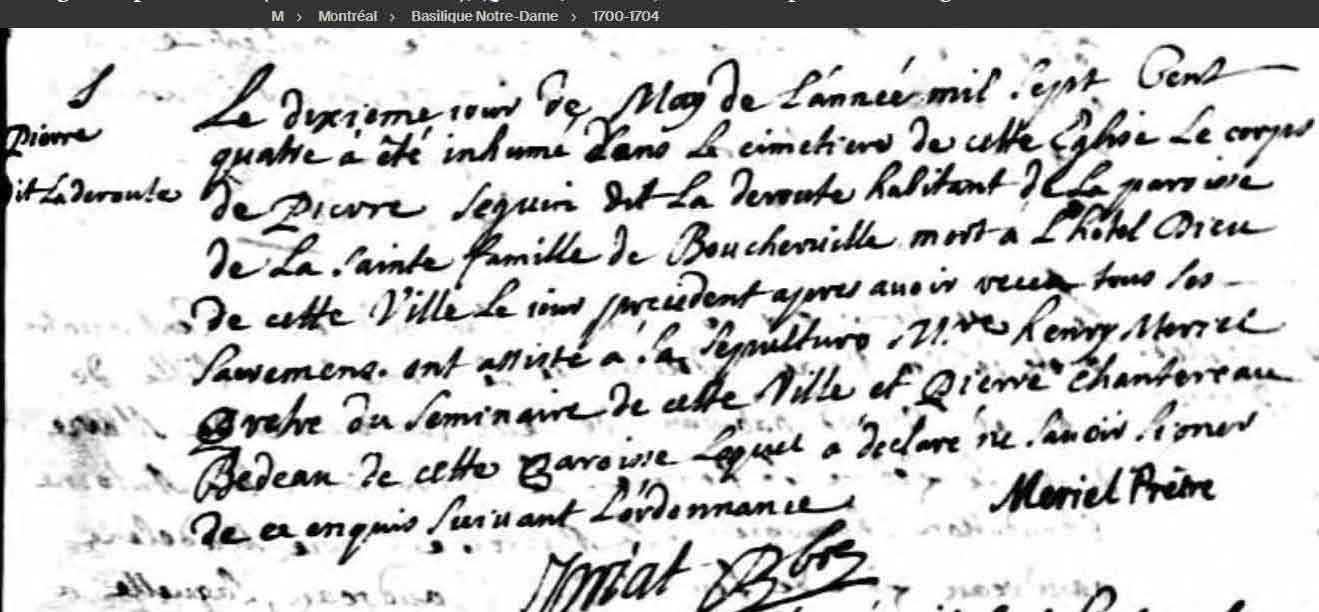 M › Montréal › Basilique Notre-Dame › 1700-1704
S
Pierre
dit Laderoute
Le dixieme iour de May de L'année mil sept Cent
quatre a été inhumé dans Le cimetiere de cette Eglise Le corps
de Pierre seguin dit La deroute habitant de La paroisse
de La sainte famille de Boucherville mort a L'hôtel Dieu
de cette Ville Le iour precedent apres auoir receu tous ses
sacremens. ont assisté a sa sepulture M.re henry Meriel
Prêtre du seminaire de cette Ville et Pierre Chantereau
Bedeau de cette Paroisse Lequel a déclaré ne sauoir signer
de ce enquis suiuant L'ordonnance
Meriel Prêtre
Priat Pbre